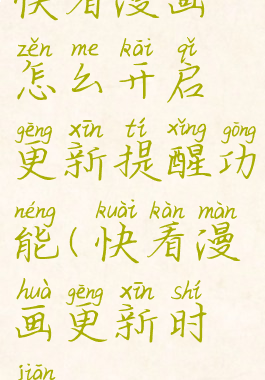 快看漫画
zěn me kāi qǐ
怎么开启
gēng xīn tí xǐng gōng
更新提醒功
néng kuài kàn màn
能(快看漫
huà gēng xīn shí
画更新时
jiān